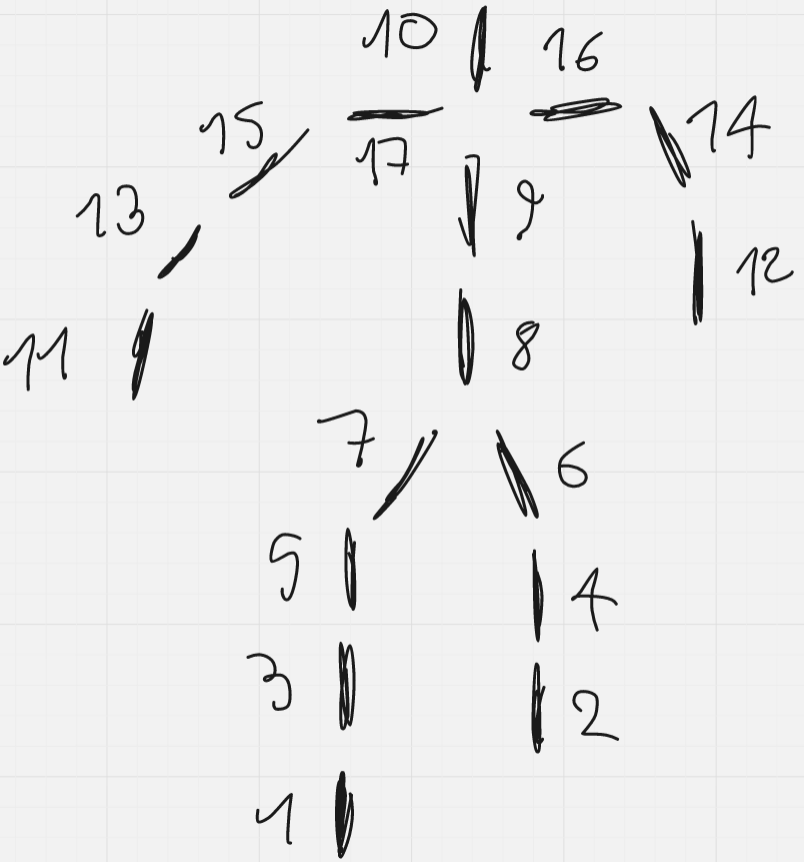 10 16
15 17 14
13 9
12
11 8
7 6
5 4
3 2
1